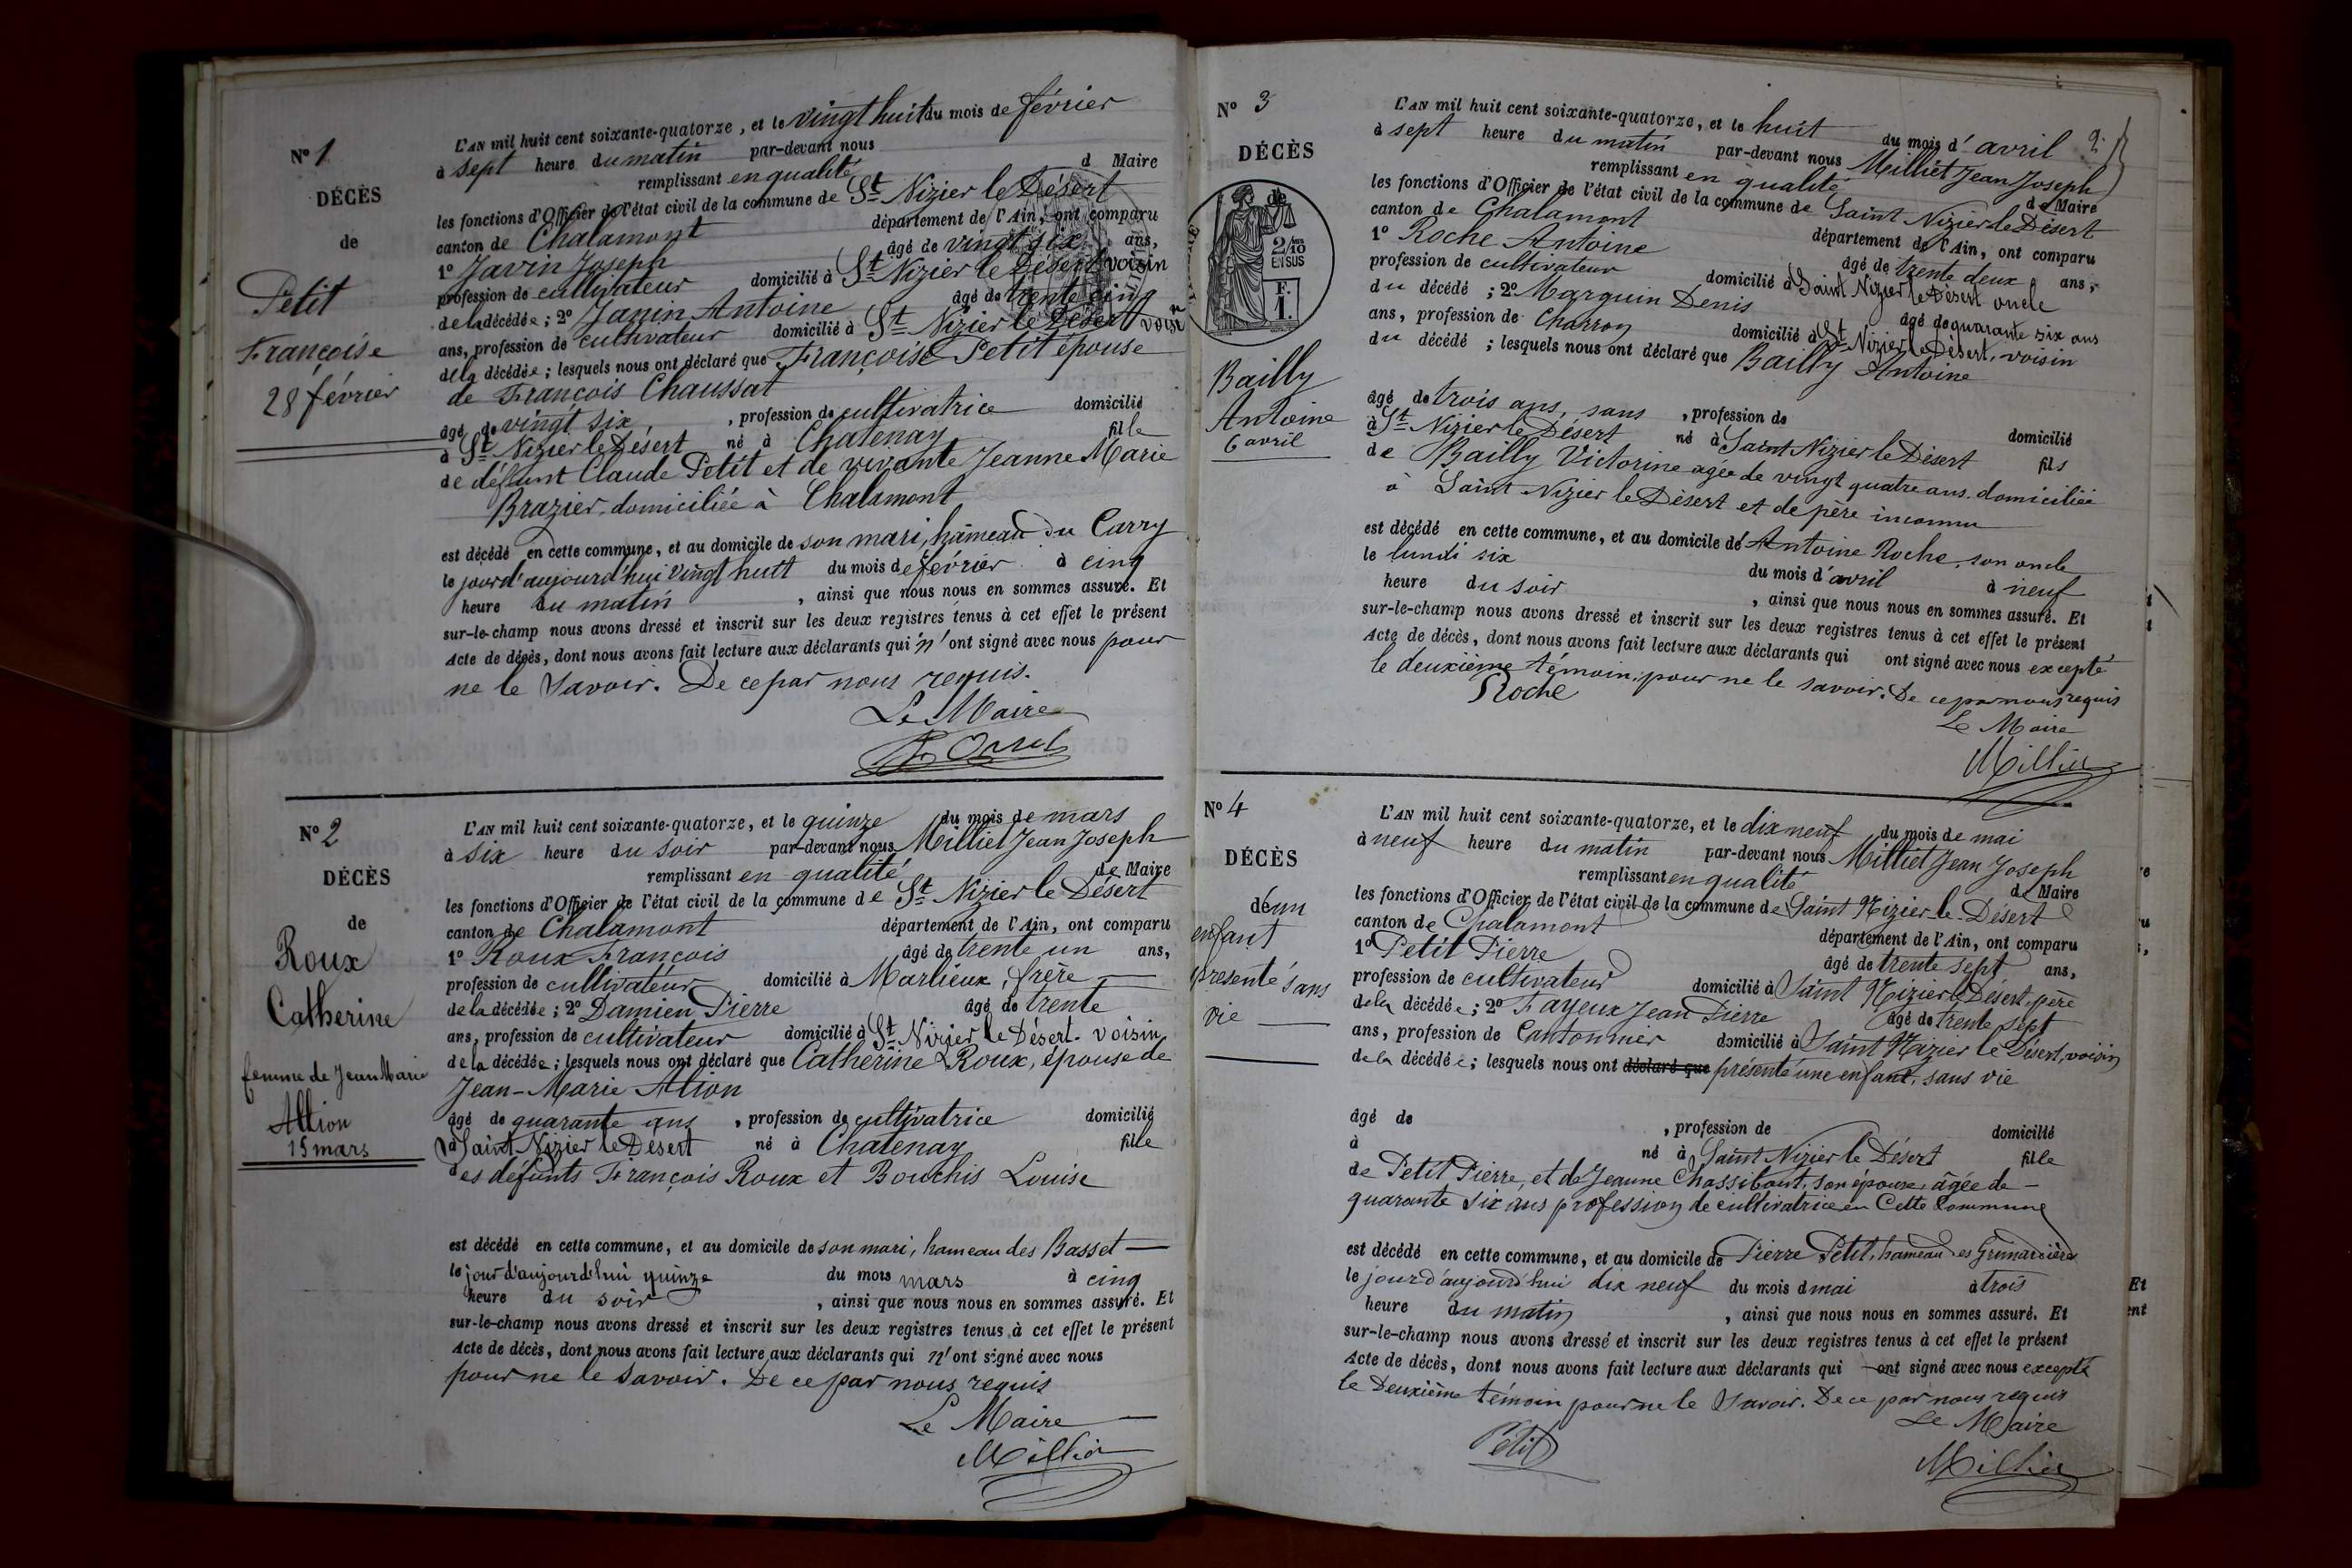 Nº 1
DÉCÈS
de
Petit
Françoise
28 février
L'AN mil huit cent soixante-quatorze, et le vingt huit du mois de février
à sept heure du matin par-devant nous
remplissant en qualité d Maire
les fonctions d'Officier de l'état civil de la commune de St Nizier le Désert
canton de Chalamont département de l'Ain, ont comparu
1º Javin Joseph âgé de vingt six ans,
profession de cultivateur domicilié à St Nizier le Désert voisin
de la décédée ; 2º Janin Antoine âgé de trente cinq
ans, profession de cultivateur domicilié à St Nizier le Désert voisin
de la décédée ; lesquels nous ont déclaré que Françoise Petit épouse
de François Chaussat
âgé de vingt six , profession de cultivatrice domicilié
à St Nizier le Désert né à Chatenay fille
de défunt Claude Petit et de vivante Jeanne Marie
Brazier, domiciliée à Chalamont
est décédé en cette commune, et au domicile de son mari, hameau du Carry
le jour d'aujourd'hui vingt huit du mois de février à cinq
heure du matin , ainsi que nous nous en sommes assuré. Et
sur-le-champ nous avons dressé et inscrit sur les deux registres tenus à cet effet le présent
Acte de décès, dont nous avons fait lecture aux déclarants qui n'ont signé avec nous pour
ne le savoir. De ce par nous requis.
Le Maire
Nº 2
DÉCÈS
de
Roux
Catherine
femme de Jean Marie
Altion
15 mars
L'AN mil huit cent soixante-quatorze, et le quinze du mois de mars
à six heure du soir par-devant nous Milliet Jean Joseph
remplissant en qualité de Maire
les fonctions d'Officier de l'état civil de la commune de St Nizier le Désert
canton de Chalamont département de l'Ain, ont comparu
1º Roux François âgé de trente un ans,
profession de cultivateur domicilié à Marlieux, frère
de la décédée ; 2º Damien Pierre âgé de trente
ans, profession de cultivateur domicilié à St Nizier le Désert. voisin
de la décédée ; lesquels nous ont déclaré que Catherine Roux, épouse de
Jean-Marie Altion
âgé de quarante ans , profession de cultivatrice domicilié
à Saint Nizier le Désert né à Chatenay fille
des défunts François Roux et Bouchis Louise
est décédé en cette commune, et au domicile de son mari, hameau des Basset
le jour d'aujourd'hui quinze du mois mars à cinq
heure du soir , ainsi que nous nous en sommes assuré. Et
sur-le-champ nous avons dressé et inscrit sur les deux registres tenus à cet effet le présent
Acte de décès, dont nous avons fait lecture aux déclarants qui n'ont signé avec nous
pour ne le savoir. De ce par nous requis
Le Maire
Milliet
Nº 3
DÉCÈS
de
2/10 EN SUS
F. 1.
Bailly
Antoine
6 avril
L'AN mil huit cent soixante-quatorze, et le huit du mois d'avril
à sept heure du matin par-devant nous Milliet Jean Joseph
remplissant en qualité de Maire
les fonctions d'Officier de l'état civil de la commune de Saint Nizier le Désert
canton de Chalamont département de l'Ain, ont comparu
1º Roche Antoine âgé de trente deux ans,
profession de cultivateur domicilié à Saint Nizier le Désert oncle
du décédé ; 2º Marguin Denis âgé de quarante six ans
ans, profession de Charron domicilié à St Nizier le Désert, voisin
du décédé ; lesquels nous ont déclaré que Bailly Antoine
âgé de trois ans, sans , profession de domicilié
à St Nizier le Désert né à Saint Nizier le Désert fils
de Bailly Victorine agée de vingt quatre ans. domiciliée
à Saint Nizier le Désert et de père inconnu
est décédé en cette commune, et au domicile de Antoine Roche, son oncle
le lundi six du mois d'avril à neuf
heure du soir , ainsi que nous nous en sommes assuré. Et
sur-le-champ nous avons dressé et inscrit sur les deux registres tenus à cet effet le présent
Acte de décès, dont nous avons fait lecture aux déclarants qui ont signé avec nous excepté
le deuxième témoin, pour ne le savoir. De ce par nous requis
Roche
Le Maire
Milliet
Nº 4
DÉCÈS
d'un
enfant
présenté sans
vie
L'AN mil huit cent soixante-quatorze, et le dix neuf du mois de mai
à neuf heure du matin par-devant nous Milliet Jean Joseph
remplissant en qualité de Maire
les fonctions d'Officier de l'état civil de la commune de Saint Nizier le Désert
canton de Chalamont département de l'Ain, ont comparu
1º Petit Pierre âgé de trente sept ans,
profession de cultivateur domicilié à Saint Nizier le Désert, père
de la décédée ; 2º Fayeux Jean Pierre âgé de trente sept
ans, profession de Cantonnier domicilié à Saint Nizier le Désert, voisin
de la décédée ; lesquels nous ont déclaré que présenté une enfant, sans vie
âgé de , profession de domicilié
à né à Saint Nizier le Désert fille
de Petit Pierre, et de Jeanne Chassibout, son épouse, âgée de
quarante six ans profession de cultivatrice en Cette Commune
est décédé en cette commune, et au domicile de Pierre Petit, hameau
le jour d'aujourd'hui dix neuf du mois d mai à trois
heure du matin , ainsi que nous nous en sommes assuré. Et
sur-le-champ nous avons dressé et inscrit sur les deux registres tenus à cet effet le présent
Acte de décès, dont nous avons fait lecture aux déclarants qui ont signé avec nous excepté
le Deuxième témoin pour ne le savoir. De ce par nous requis
Petit
Le Maire
Milliet